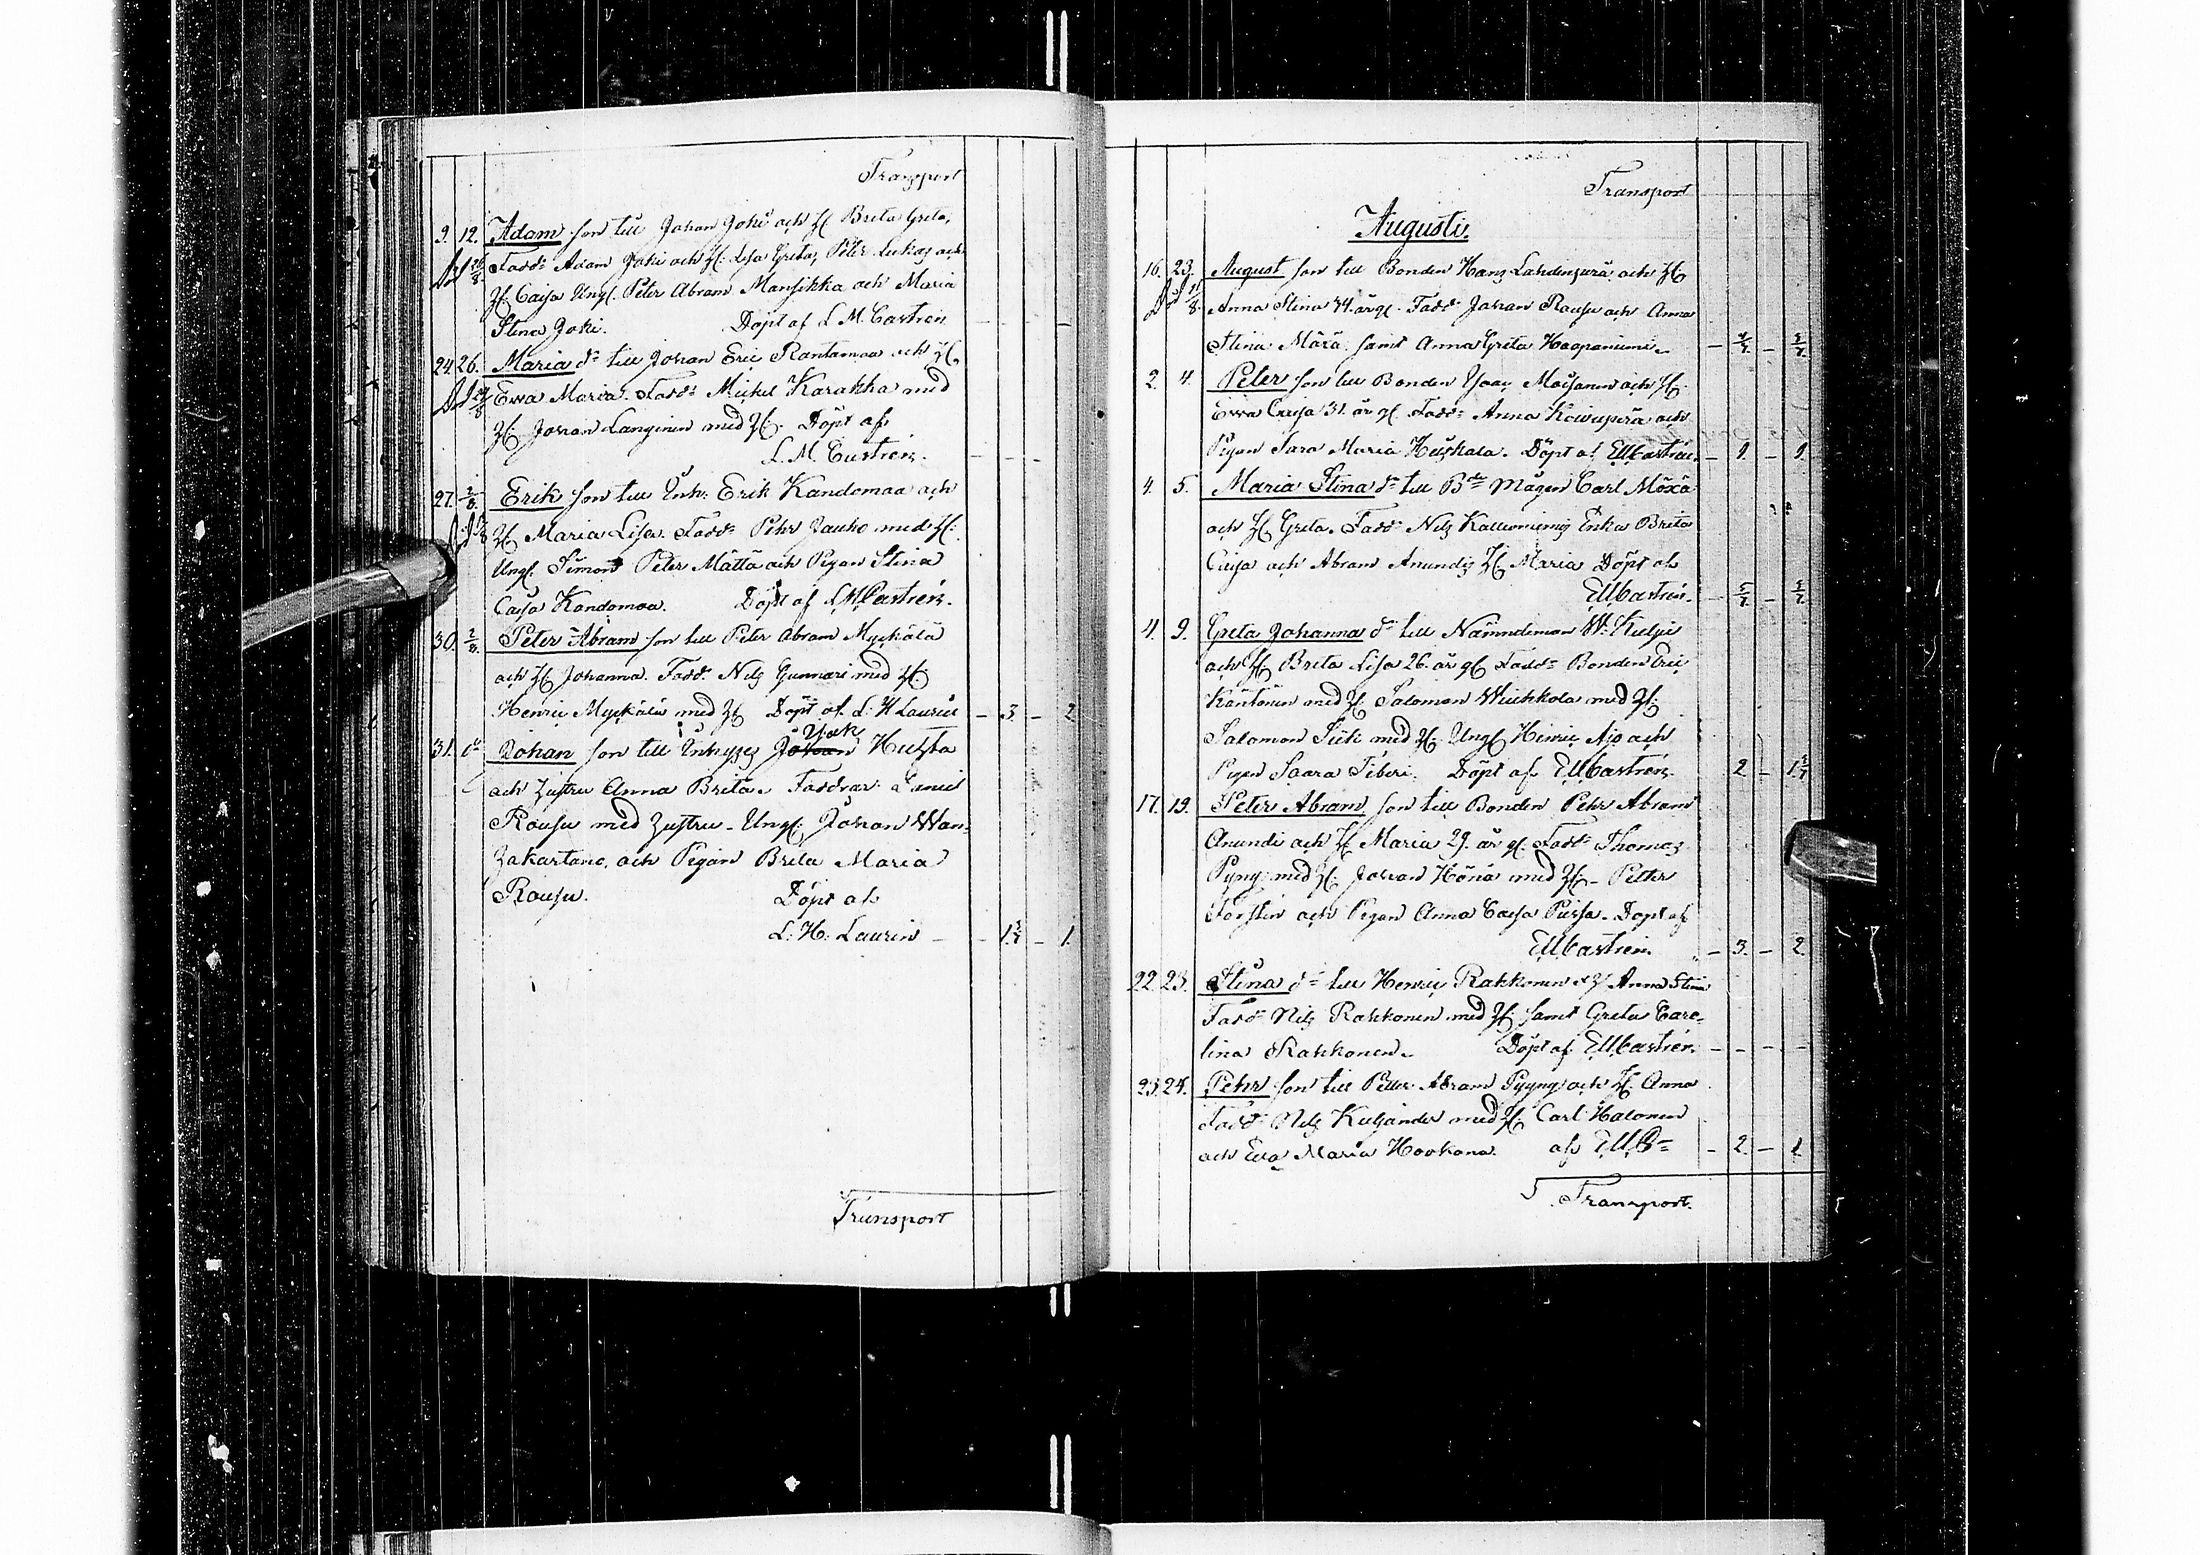 Transport
9. 12. Adam son till Johan Joki och H. Brita Greta,
Fadd: Adam Joki och H. Lisa Greta, Peter Lukas och
H. Caisa Ungl. Peter Abram Mansikka och Maria
Stina Joki. Döpt af L M. Castrén
24. 26. Maria dr till Johan Eric Rantamaa och H.
Ewa Maria. Fadd: Mickel Karakka med
H. Johan Langinen med H. Döpt af
L. M. Castrén.
27. 2/8. Erik son till Inh: Erik Kandomaa och
H. Maria Lisa. Fadd: Pehr Jauho med H.
Ungl. Simon Peter Mätta och Pigan Stina
Caisa Kandomaa. Döpt af L M Castrén.
30. 2/8. Peter Abram son till Peter Abram Myckälä
och H. Johanna. Fadd: Nils Gunnari med H.
Henric Myckälä med H. Döpt af L: H Laurin – 3. – 2
Isak
31. Johan son till Inhyses Johan Huista
och hustru Anna Brita. Faddrar: Daniel
Rousu med hustru – Ungl. Johan Wan-
hakartano, och Pigan Brita Maria
Rousu. Döpt af
L: H: Laurin – 1.
Transport
Transport
Augusti.
16. 23. August son till Bonden Hans Lahdenperä och H.
Anna Stina 34. år gl. Fadd: Johan Rousu och Anna
Stina Märä samt Anna Greta Haapaniemi.
2. 4. Peter son till Bonden Isaac Moisanen och H.
Ewa Caisa 31. år gl. Fadd: Anna Koivuperä och
Pigan Sara Maria Heiskala. Döpt af EMCastrén. – 1. – 1.
4. 5. Maria Stina dr till Bde Mågen Carl Möxä
och H. Greta. Fadd: Nils Kallioniemis Enka Brita
Caisa och Abram Anundis H. Maria Döpt af
EMCastrén.
4. 9. Greta Johanna dr till Nämndeman W: Kulpi
och H. Brita Lisa 26. år gl. Fadd: Bonden Eric
Käntönen med H. Salomon Wuikkola med H.
Salomon Siik med H. Ungl. Henric Ajo och
Pigan Saara Siberi. Döpt af EMCastrén. 2
17. 19. Peter Abram son till Bonden Pehr Abram
Anundi och H. Maria 29. år gl. Fadd: Thomas
Pyny med H. Johan Hörö med H. – Petter
Forstin och Pigan Anna Caisa Puissa. Döpt af
EMCastrén. – 3. – 2
22. 23. Stina dr till Henric Rakkonen o H. Anna Stina
Fadd: Nils Rakkonen med H. samt Greta Caro-
lina Rakkonen. Döpt af EMCastrén.
23. 24. Pehr son till Petter Abram Pyyny och H. Anna
Fadd: Nils Kuljander med H. Carl Halonen
och Ewa Maria Hookana. af EMC – 2. – 1.
Transport.